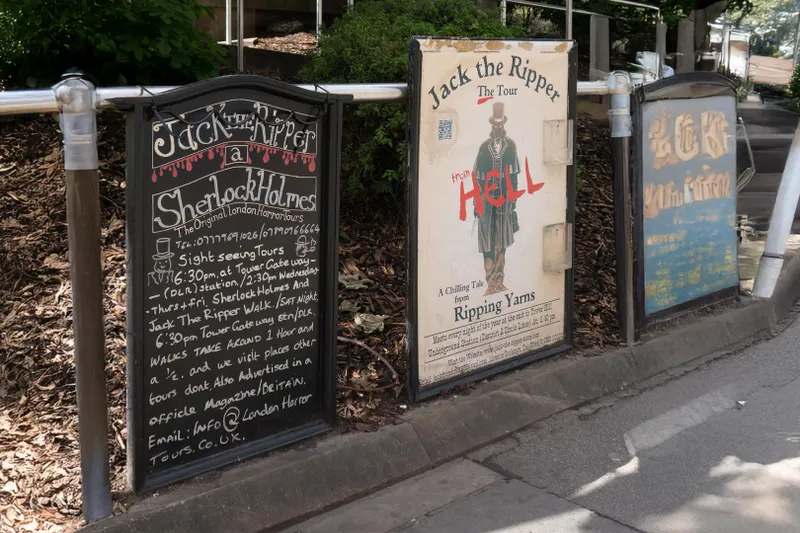 Jack THE Ripper
a
SherlockHolmes
The Original London Horror Tours
Sight seeing Tours
6:30pm, at Tower Gateway-
- (DLR) station, / 2:30pm Wednesday
Thurs + Fri. Sherlock Holmes And
Jack The Ripper WALK / SAT Night,
6:30pm Tower Gateway stn/DLR.
WALKS TAKE AROUND 1 Hour and
a ½. and we visit places other
tours dont. Also Advertised in a
officle Magazine/BRITAIN.
Email: Info@London Horror
Tours. Co. UK.
Jack the Ripper
The Tour
from
HELL
A Chilling Tale
from
Ripping Yarns
Meets every night of the year at the exit to Tower Hill
Underground Station (District & Circle Lines) At: 6.45 pm